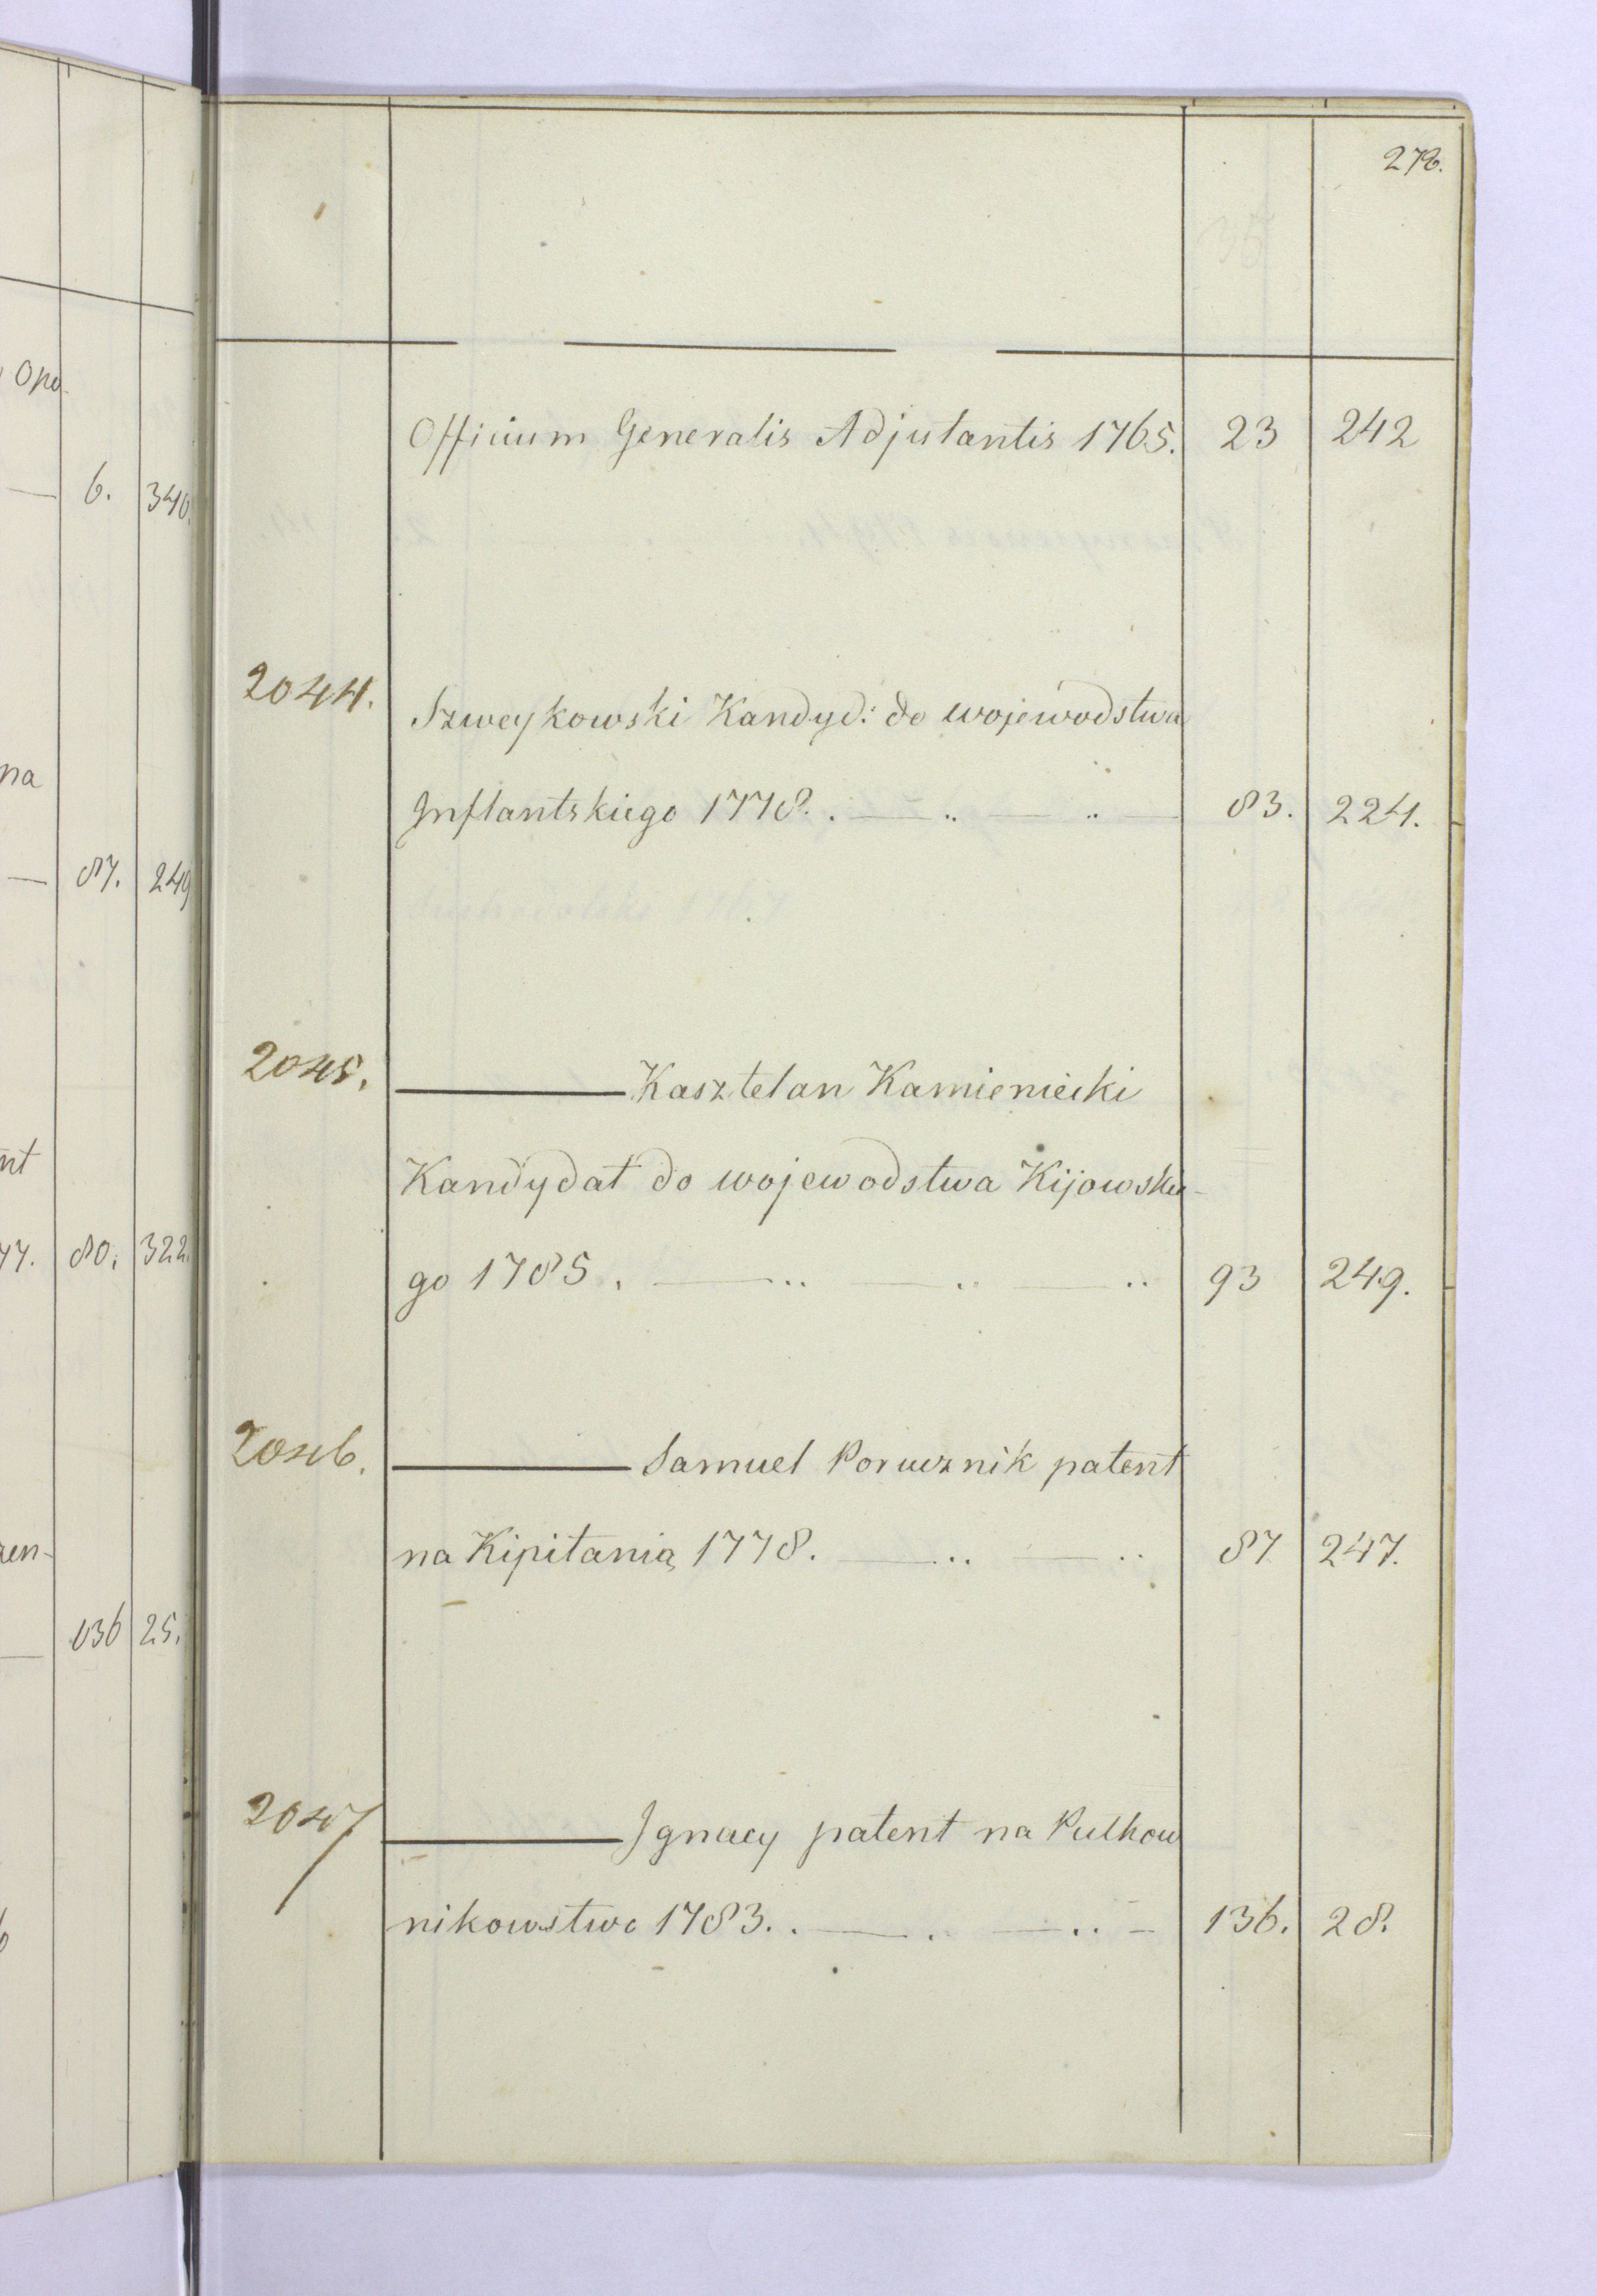 278.
Opo
6. 340.
na
87. 249
nt
77. 80. 322.
zen-
136 25.
Officium Generalis Adjutantis 1765. 23 242
2044. Szweykowski Kandyd: do wojewodstwa
Inflantskiego 1778. 83. 224.
2045. Kasztelan Kamieniecki
Kandydat do wojewodstwa Kijowskie-
go 1785. 93 249.
2046. Samuel Porucznik patent
na Kipitanią 1778. 87 247.
2047 Ignacy patent na Pulkow
nikowstwo 1783. 136. 28.